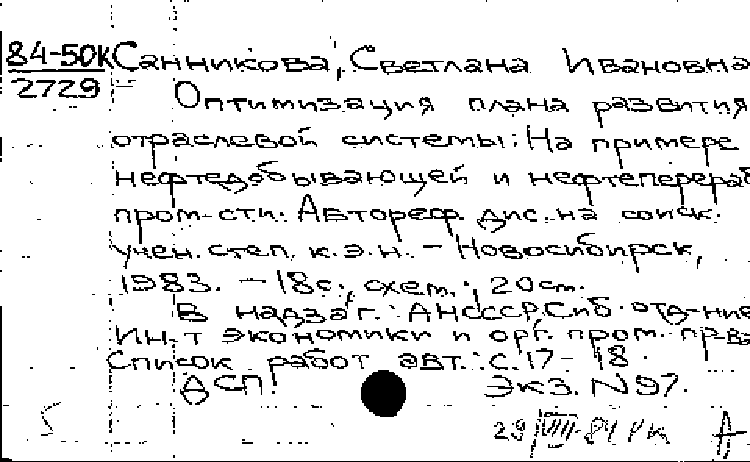 84-50к Санникова, Светлана Ивановна
2729 Оптимизация плана развития
отраслевой системы: На примере
нефтедобывающей и нефтеперераб
пром-сти: Автореф. дис. на соиск.
учен. степ. к.э.н. - Новосибирск,
1983. - 18 с.; схем.; 20 см.
В надзаг.: АН СССР, Сиб. отд-ние
Ин-т экономики и орг. пром. пр-ва
Список работ авт.: с. 17-18.
ДСП! Экз. N 97.
5 29/VIII-84 А